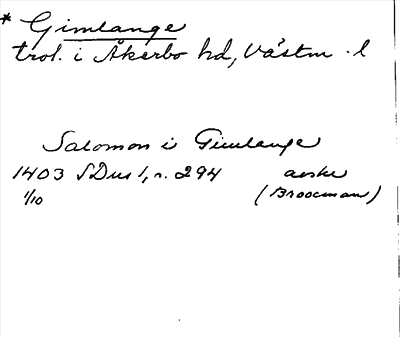 * Gimlange
trol. i Åkerbo hd, Västm. l
Salomon i Gimlange
1403 SDns 1, n. 294 avskr
1/10 (Broocman)